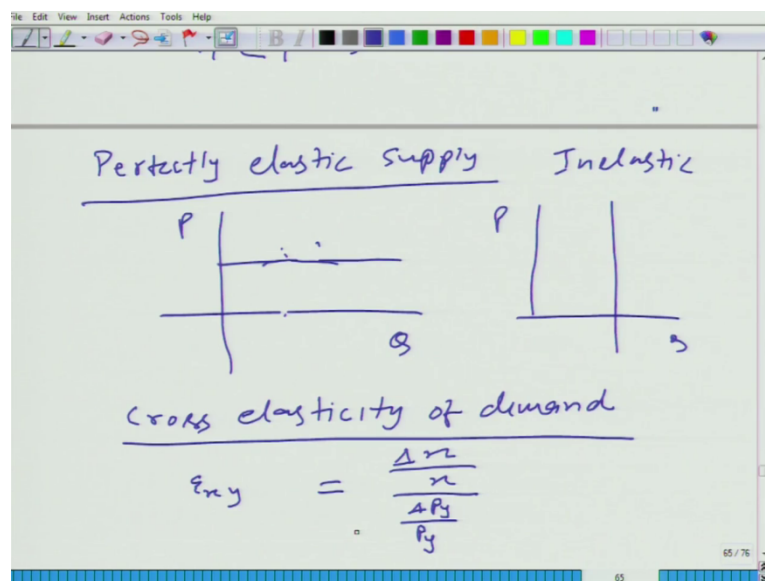 File Edit View Insert Actions Tools Help
B I
Perfectly elastic supply Inelastic
P P
Q
Cross elasticity of demand
εxy = Δx
x
ΔPy
Py
65 / 76
65